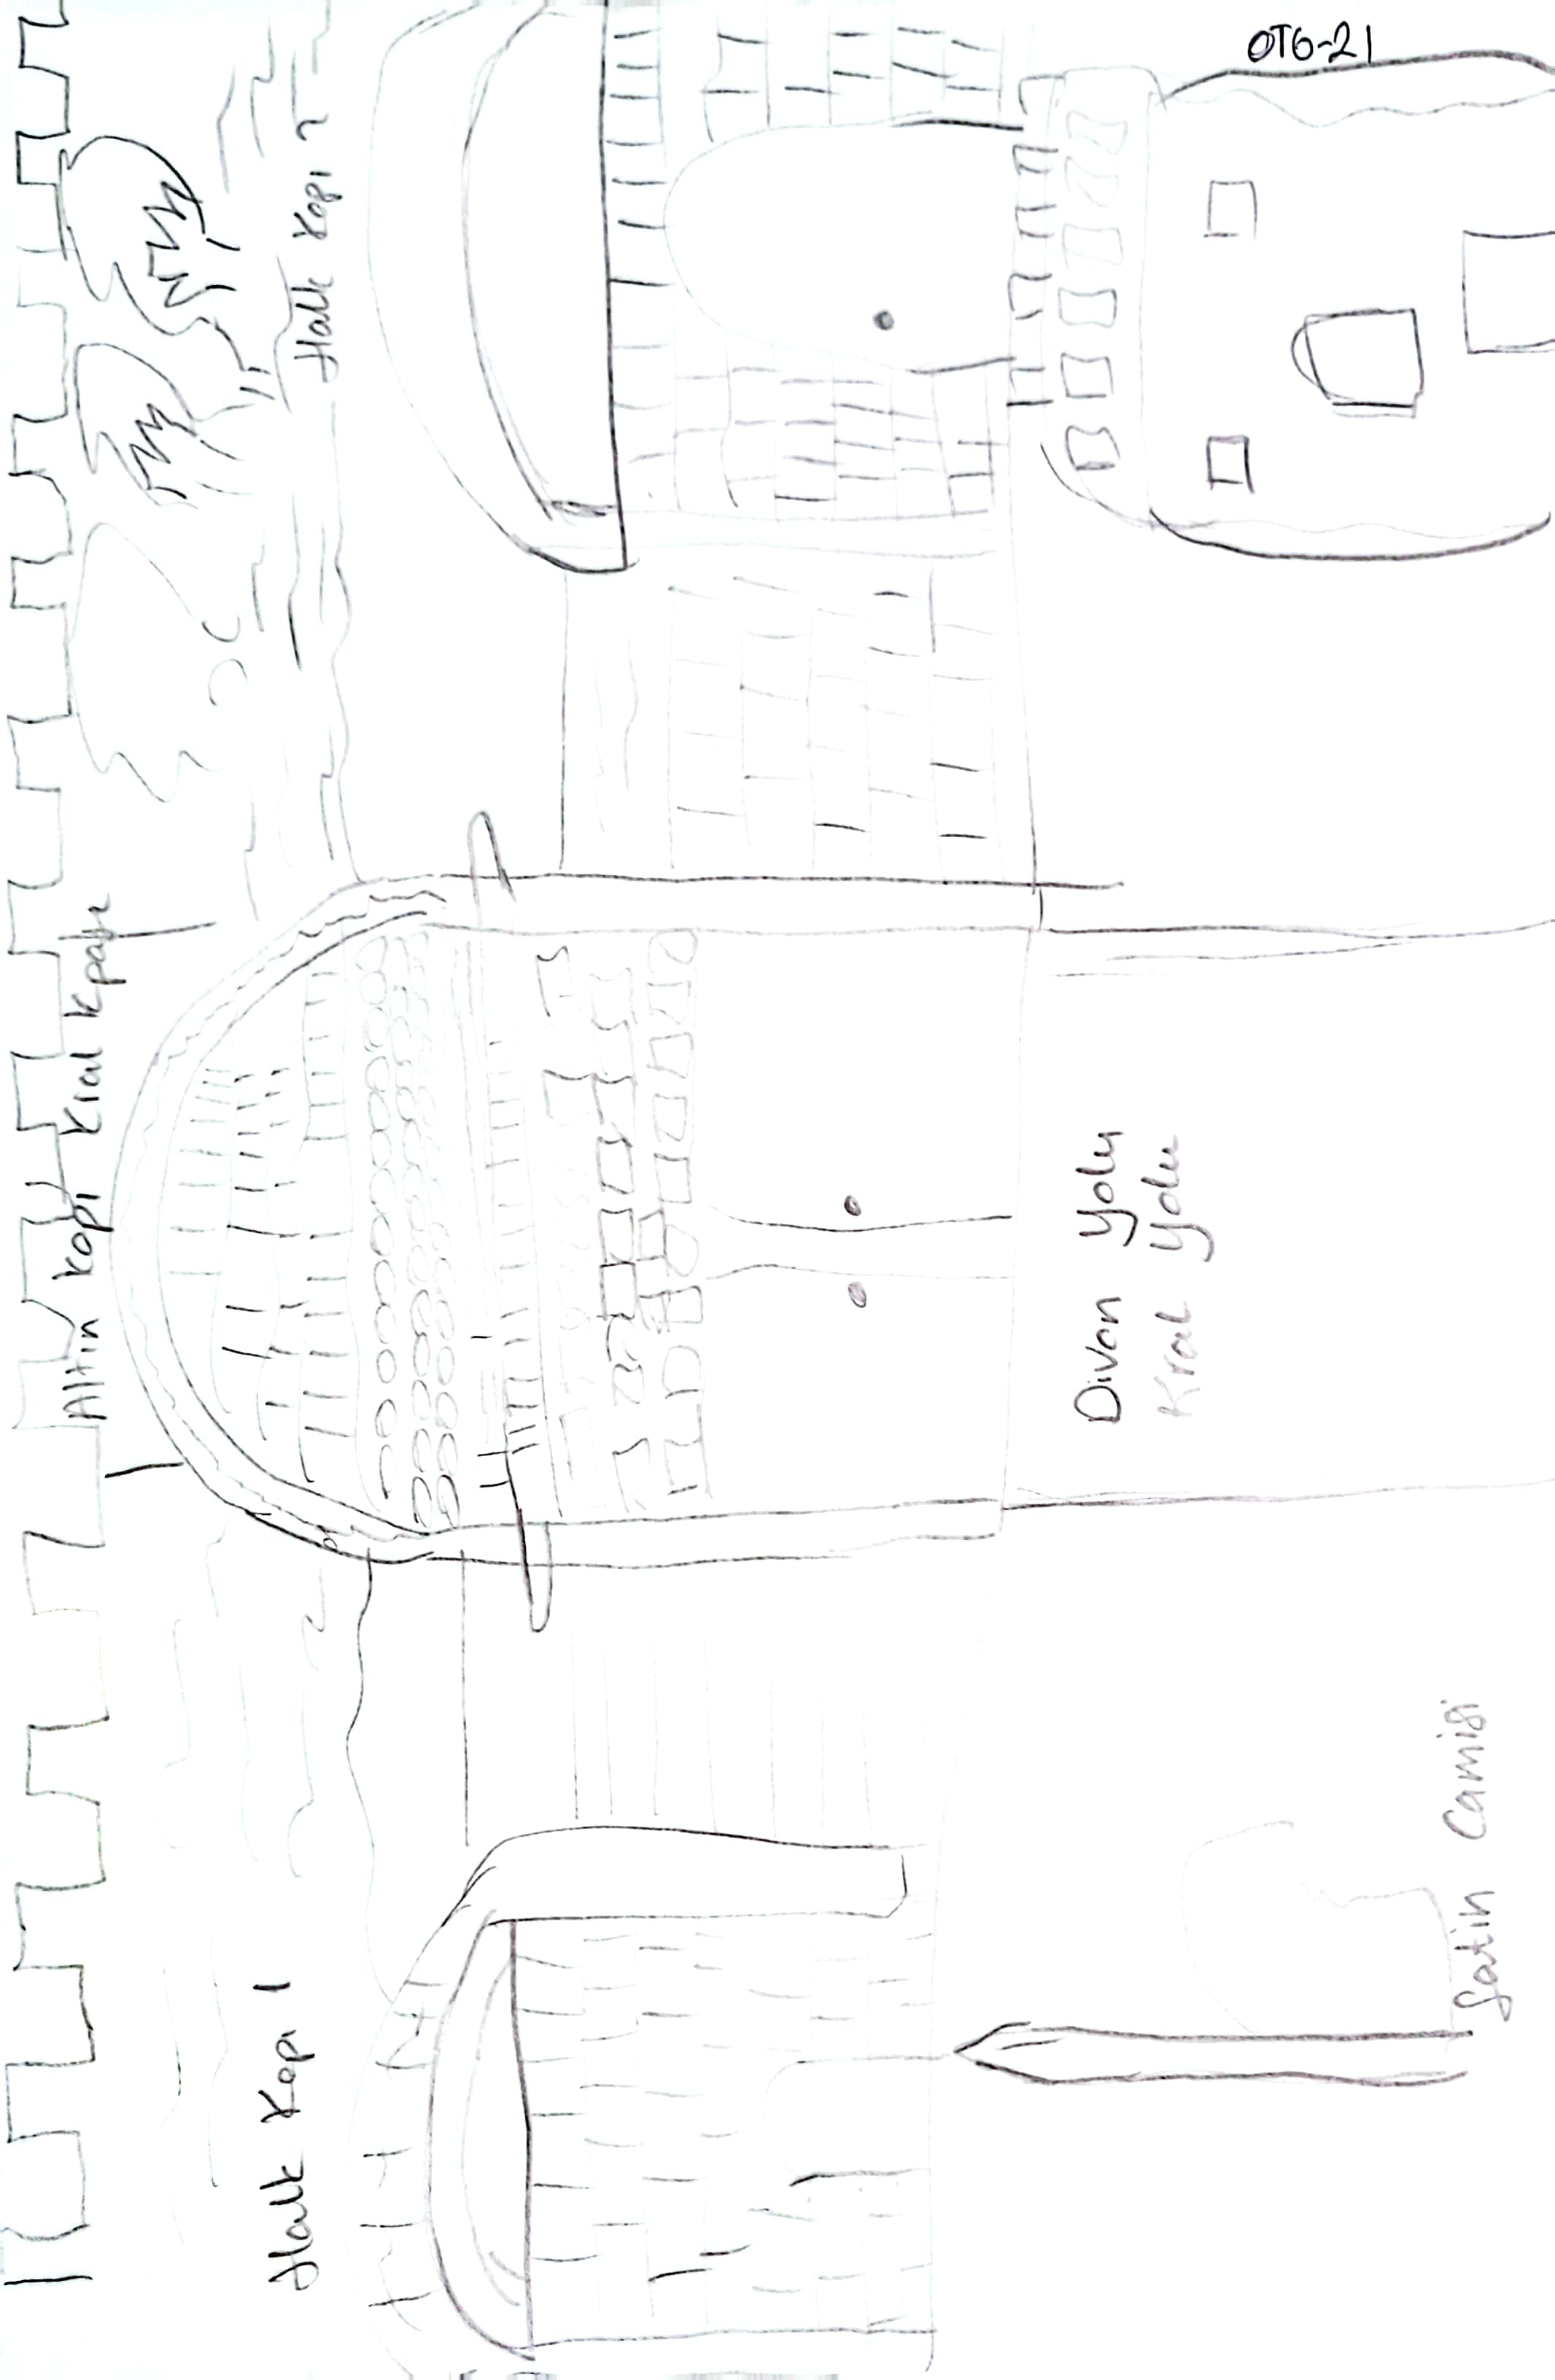 OTG-21
Altın kapı Kral kpaı
Halk Kapı 1
Halk Kapı 2
Divan yolu
Kral yolu
Fatih Camisi